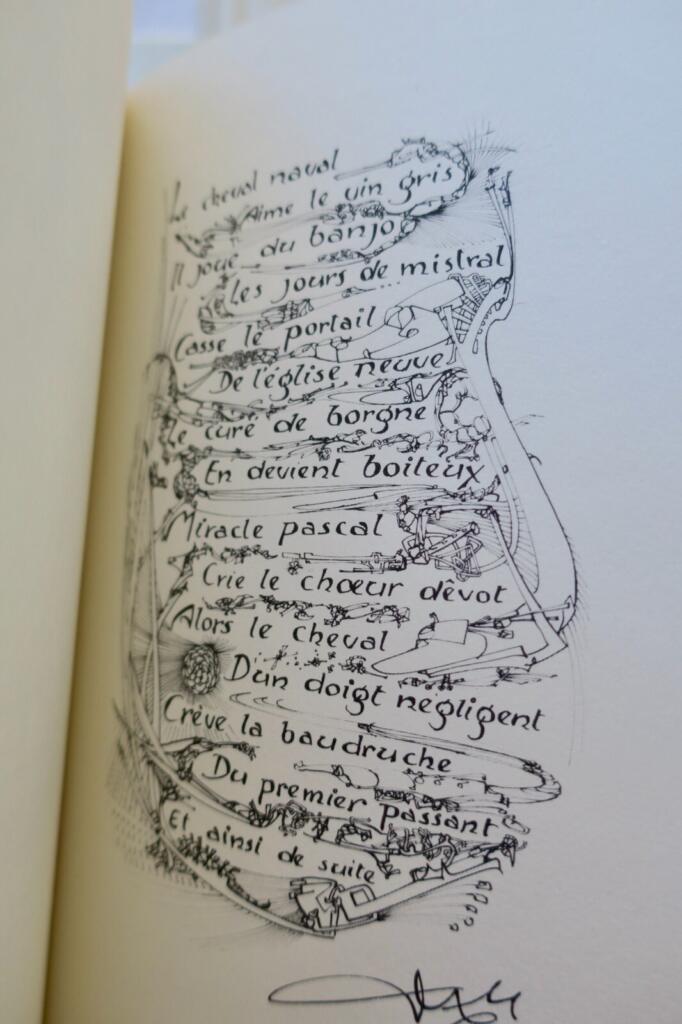 Le cheval naval
Aime le vin gris
Il joue du banjo
Les jours de mistral
Casse le portail
De l'église neuve
Le curé de borgne
En devient boiteux
Miracle pascal
Crie le chœur dévot
Alors le cheval
D'un doigt négligent
Crève la baudruche
Du premier passant
Et ainsi de suite